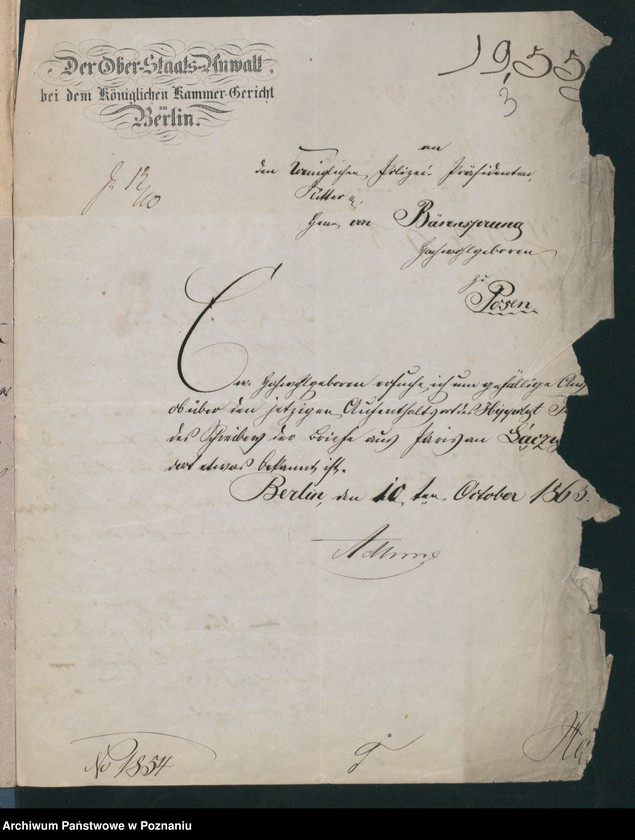 Der Ober-Staats-Anwalt
bei dem Königlichen Kammer-Gericht
zu
Berlin.
1955
3
an
den Königlichen Polizei-Präsidenten,
Ritter
Herrn von Bärensprung
Hochwohlgeboren
zu
Posen.
Ew. Hochwohlgeboren ersuche ich um gefällige
ob über den jetzigen Aufenthaltsort des Hippolyt
des Schreibers der Briefe aus Paris an
dort etwas bekannt ist.
Berlin, den 10 ten October 1863.
Adlung
No 1854
Archiwum Państwowe w Poznaniu